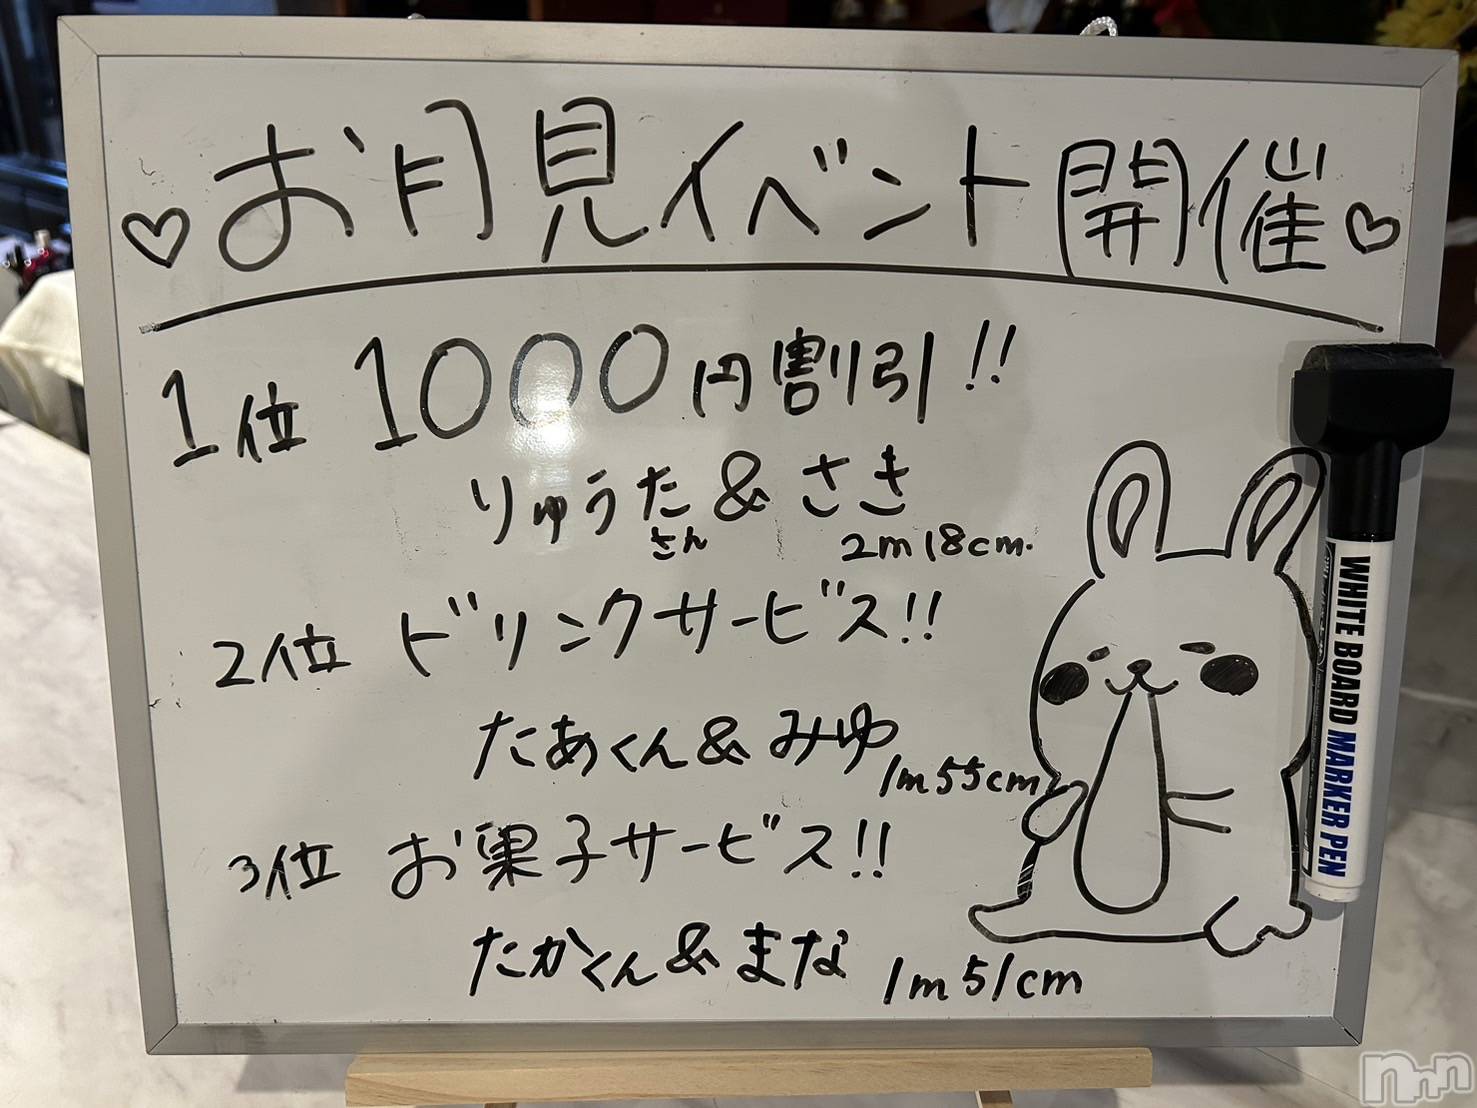 ♡お月見イベント開催♡
1位 1000円割引!!
りゅうたさん&さき 2m18cm.
2位 ドリンクサービス!!
たあくん&みゆ 1m55cm
3位 お菓子サービス!!
たかくん&まな 1m51cm
WHITE BOARD MARKER PEN
nnn